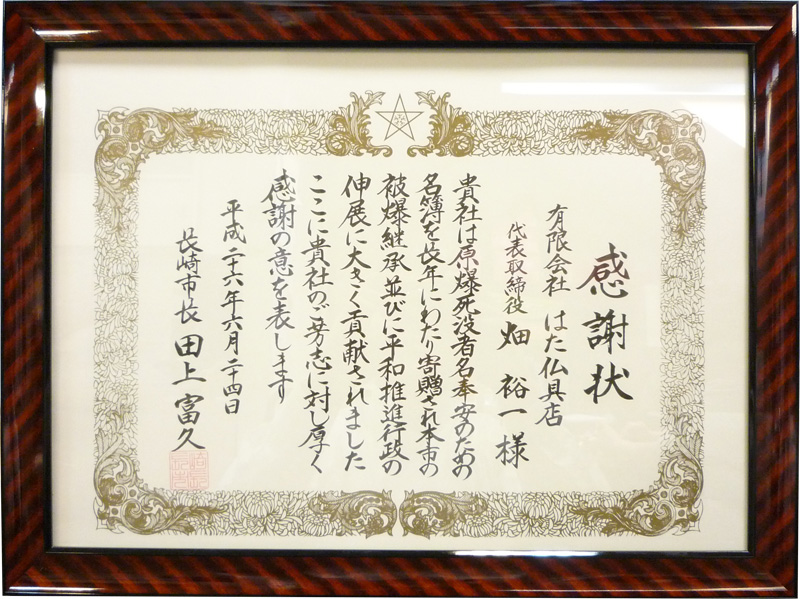 感謝状
有限会社 はた仏具店
代表取締役 畑 裕一 様
貴社は原爆死没者名奉安のための
名簿を長年にわたり寄贈され本市の
被爆継承並びに平和推進行政の
伸展に大きく貢献されました
ここに貴社のご芳志に対し厚く
感謝の意を表します
平成二十六年六月二十四日
長崎市長 田上富久